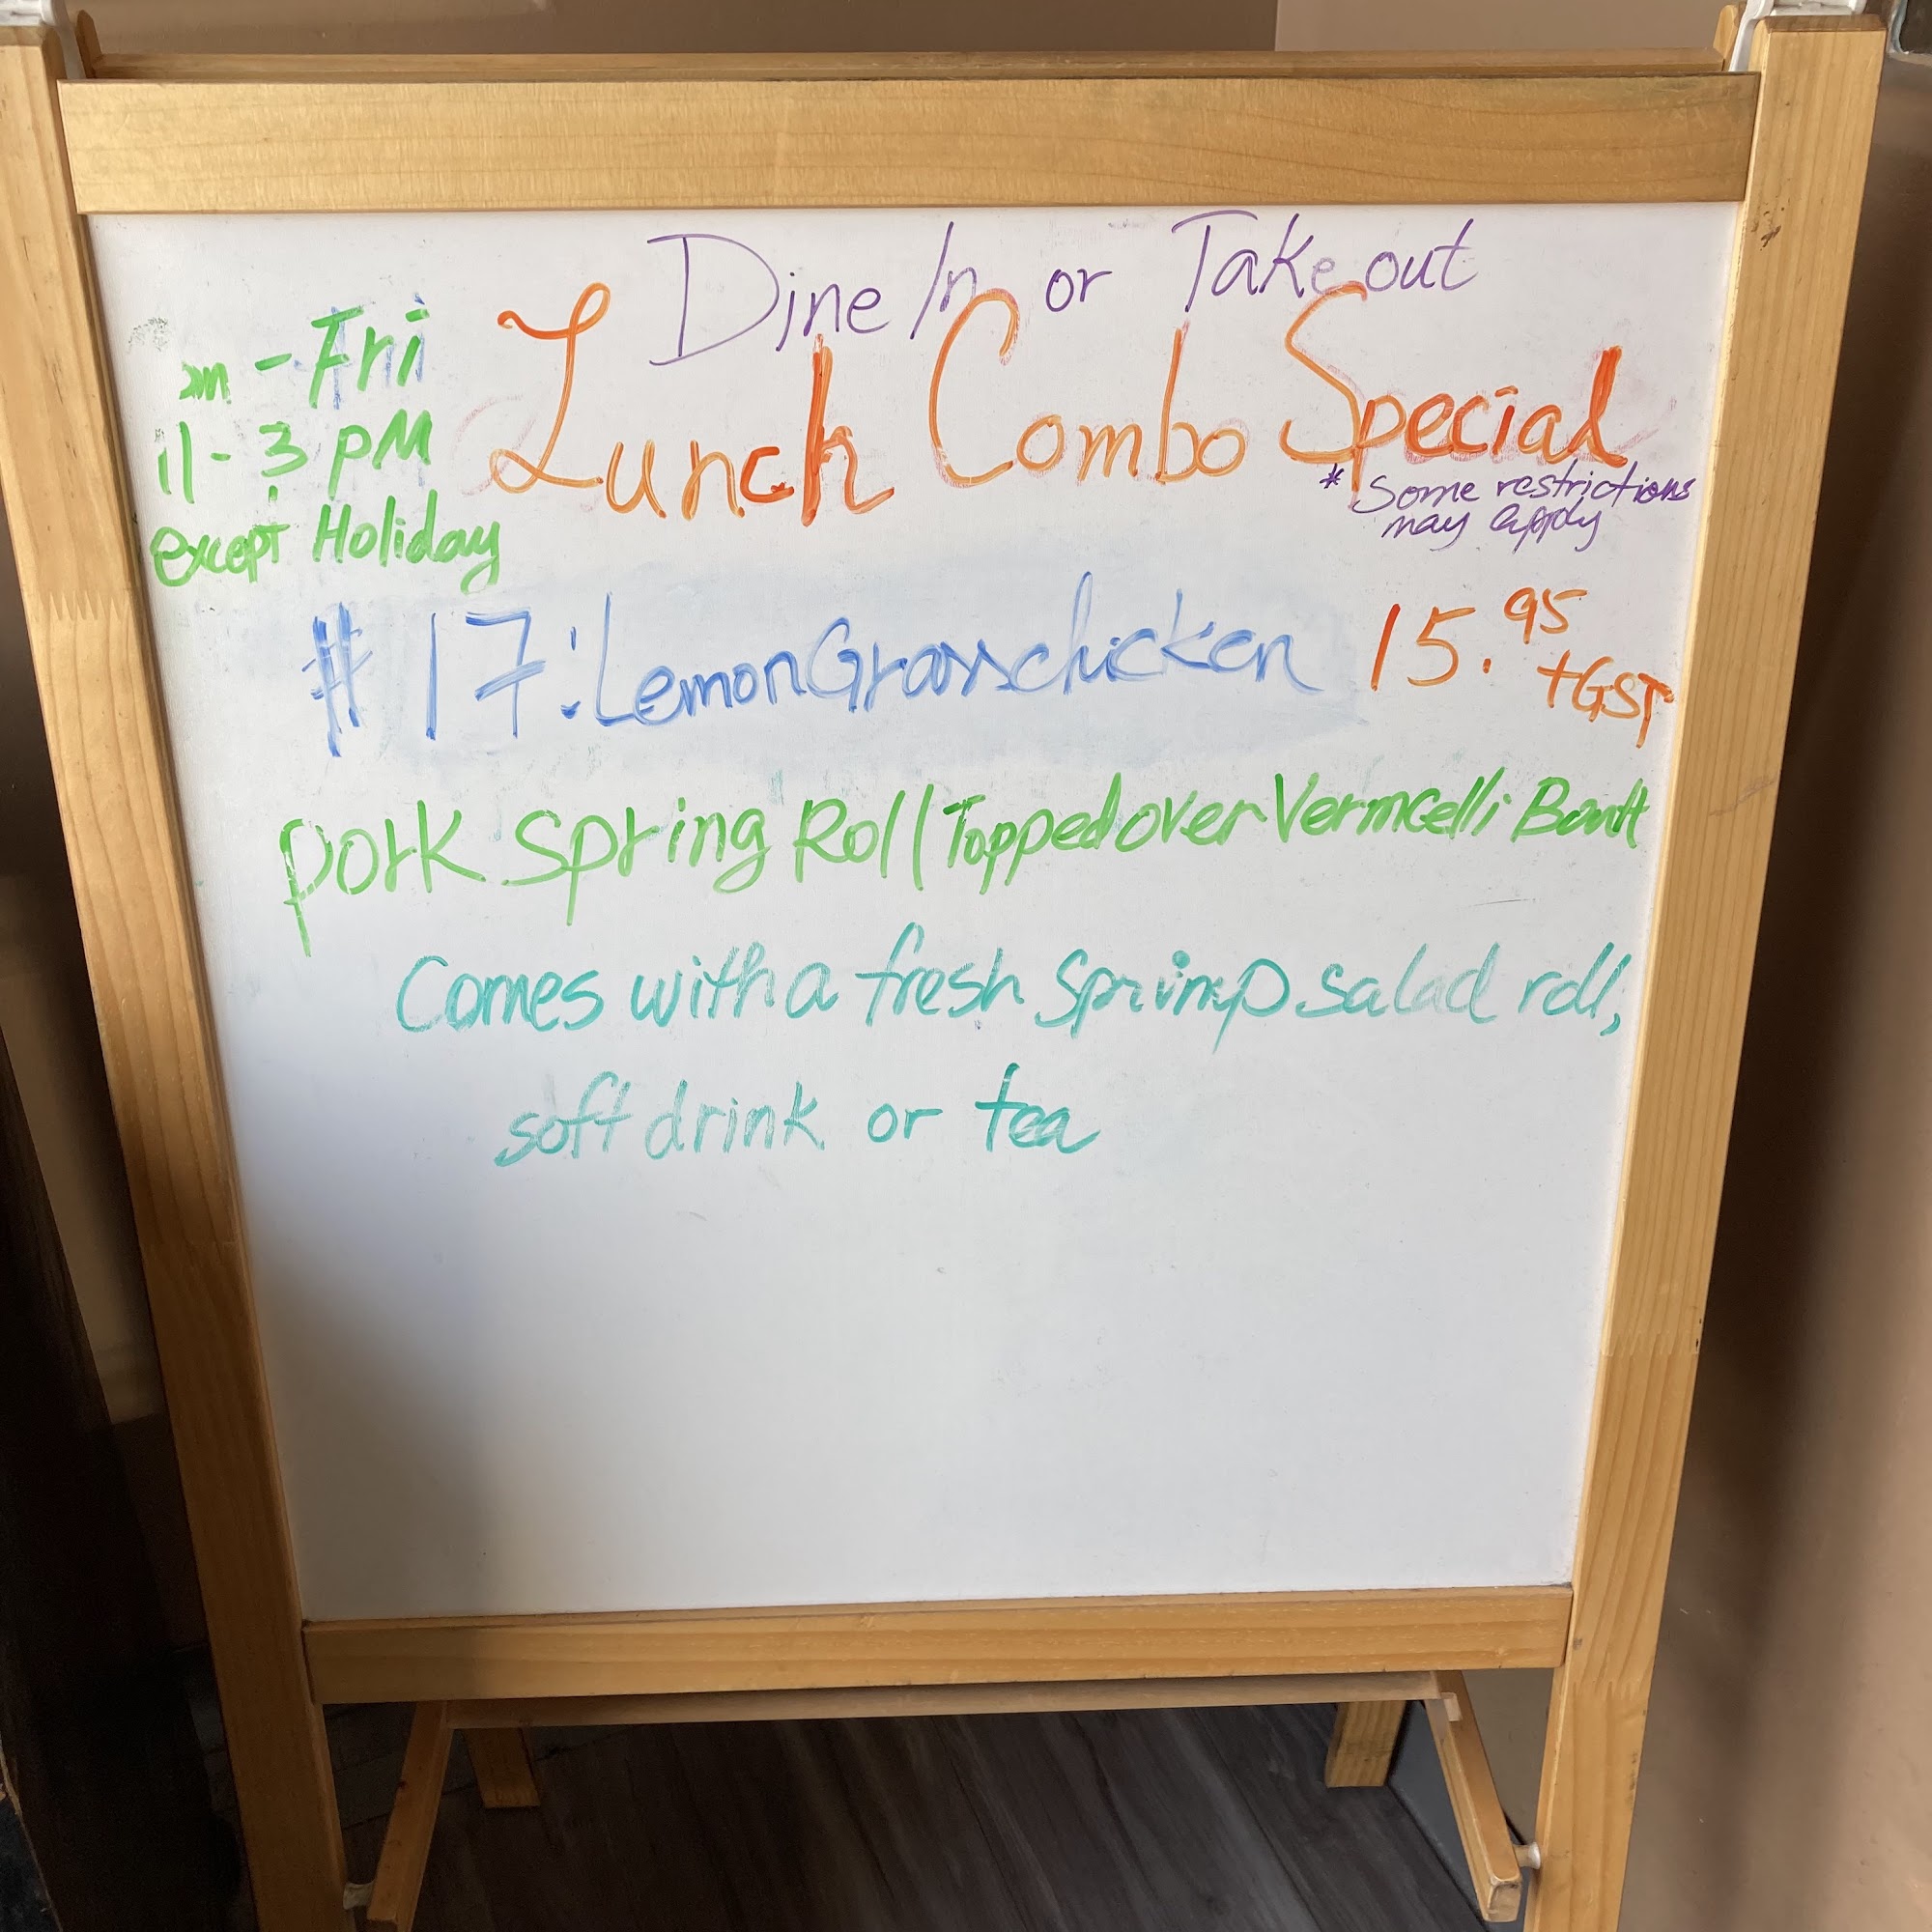 Dine In or Take out
Lunch Combo Special
* Some restrictions
may apply
- Fri
11 - 3 PM
except Holiday
# 17: Lemon Grass chicken 15.95
+GST
Pork Spring Roll Topped over Vermcelli
Comes with a fresh Sprimp salad roll,
soft drink or tea